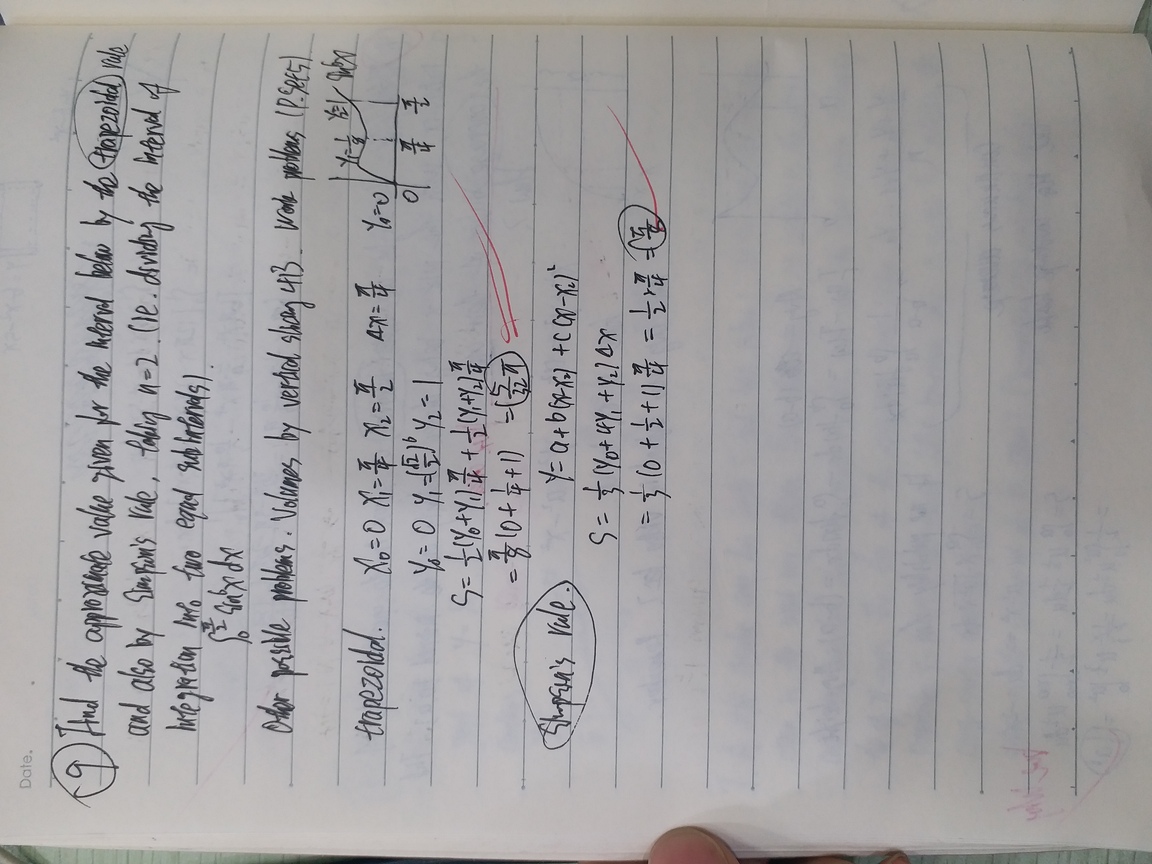 Date.
9 Find the approximate value given for the interval below by the trapezoidal rule
and also by Simpson's rule, taking n=2. (ie. dividing the interval of
integration into two equal subintervals).
∫₀^{π/2} sin⁶x dx
Other possible problems. Volumes by vertical slicing 4B. Work problems (P.Set5)
trapezoidal. X₀=0 X₁=π/4 X₂=π/2 Δx=π/4
Y₀=0 Y₁=1/8 Y₂=1 sin⁶x
0 π/4 π/2
Y₀=0 Y₁=(√2/2)⁶ Y₂=1
S=1/2(Y₀+Y₁)π/4+1/2(Y₁+Y₂)π/4
=π/8(0+1/4+1) =(5/32 π
Simpson's rule. Y=a+b(x-x₂)+c(x-x₂)²
S=1/3(Y₀+4Y₁+Y₂)Δx
=1/3(0+1/2+1)π/4 =1/2·π/4=π/8